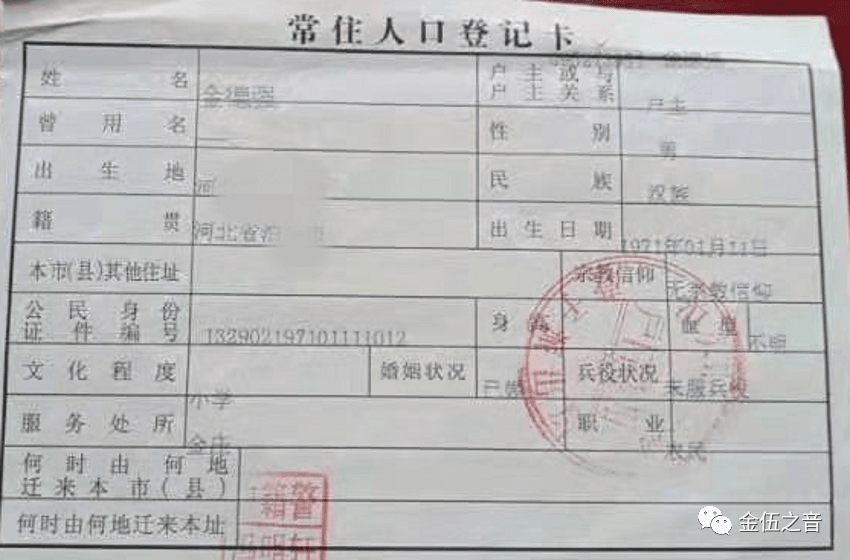 常住人口登记卡
姓名 金德强 户主或与户主关系 户主
曾用名 性别 男
出生地 河 民族 汉族
籍贯 河北省泊 出生日期 1971年01月11日
本市(县)其他住址 宗教信仰 无宗教信仰
公民身份证件编号 132902197101111012 身 血型 不明
文化程度 小学 婚姻状况 已婚 兵役状况 未服兵役
服务处所 金庄 职业 农民
何时由何地迁来本市(县)
何时由何地迁来本址
籍警
金伍之音